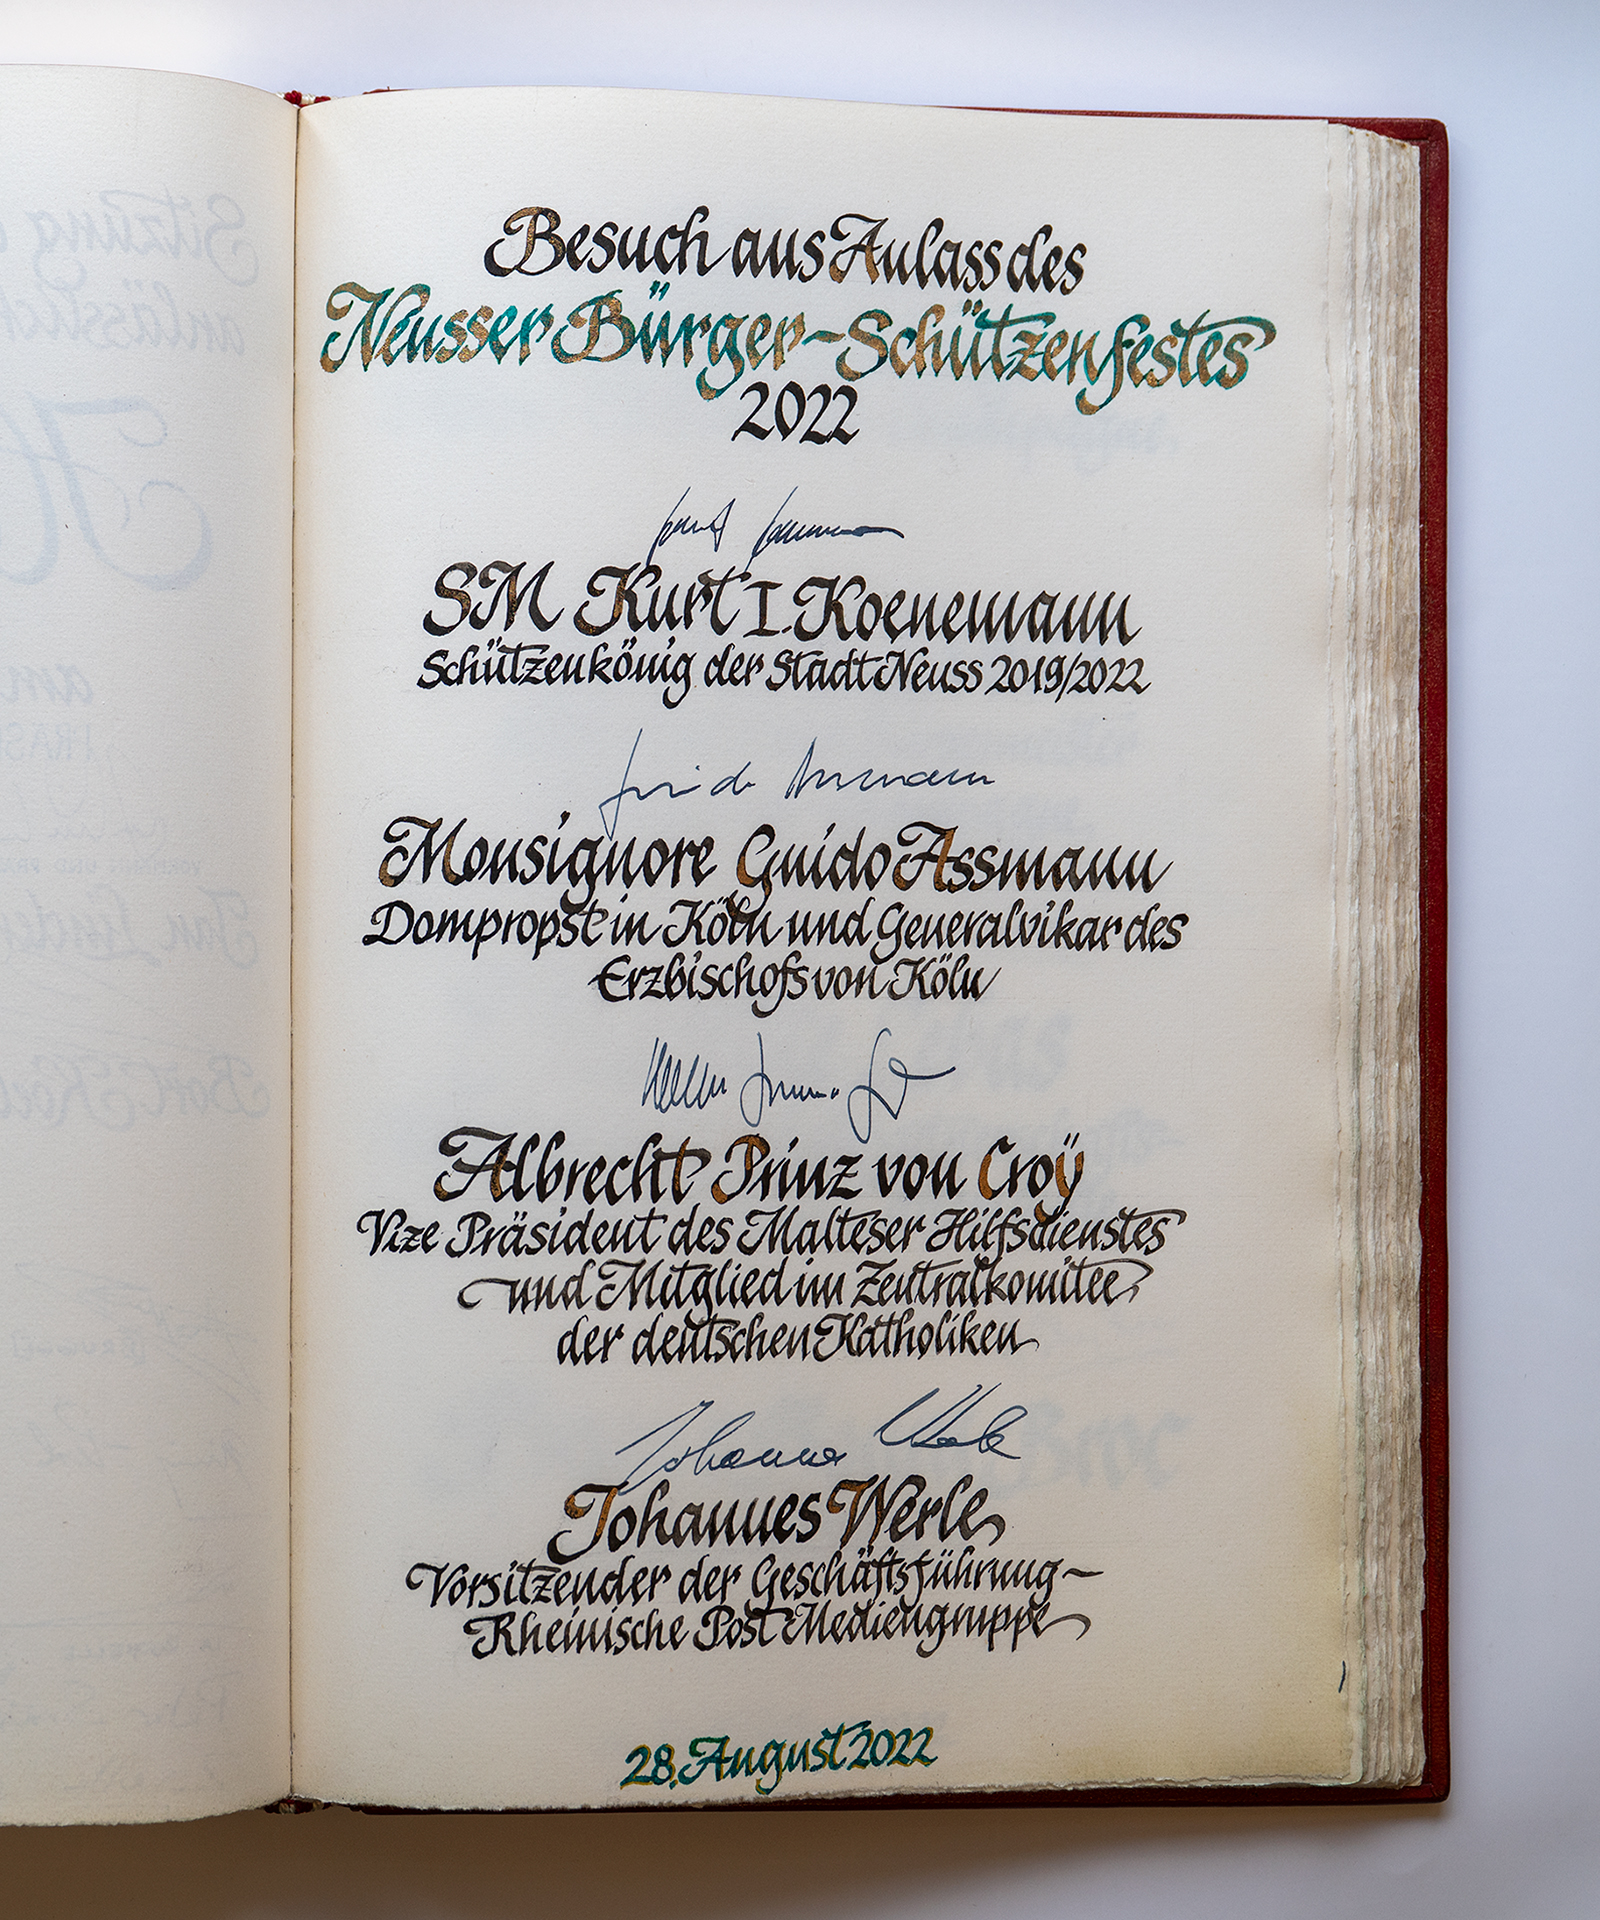 Besuch aus Anlass des
Neusser Bürger-Schützenfestes
2022
SM Kurt I. Koenemann
Schützenkönig der Stadt Neuss 2019/2022
Guido Assmann
Monsignore Guido Assmann
Dompropst in Köln und Generalvikar des
Erzbischofs von Köln
Albrecht Prinz von Croÿ
Vize Präsident des Malteser Hilfsdienstes
und Mitglied im Zentralkomitee
der deutschen Katholiken
Johannes Werle
Johannes Werle
Vorsitzender der Geschäftsführung-
Rheinische Post Mediengruppe
28. August 2022